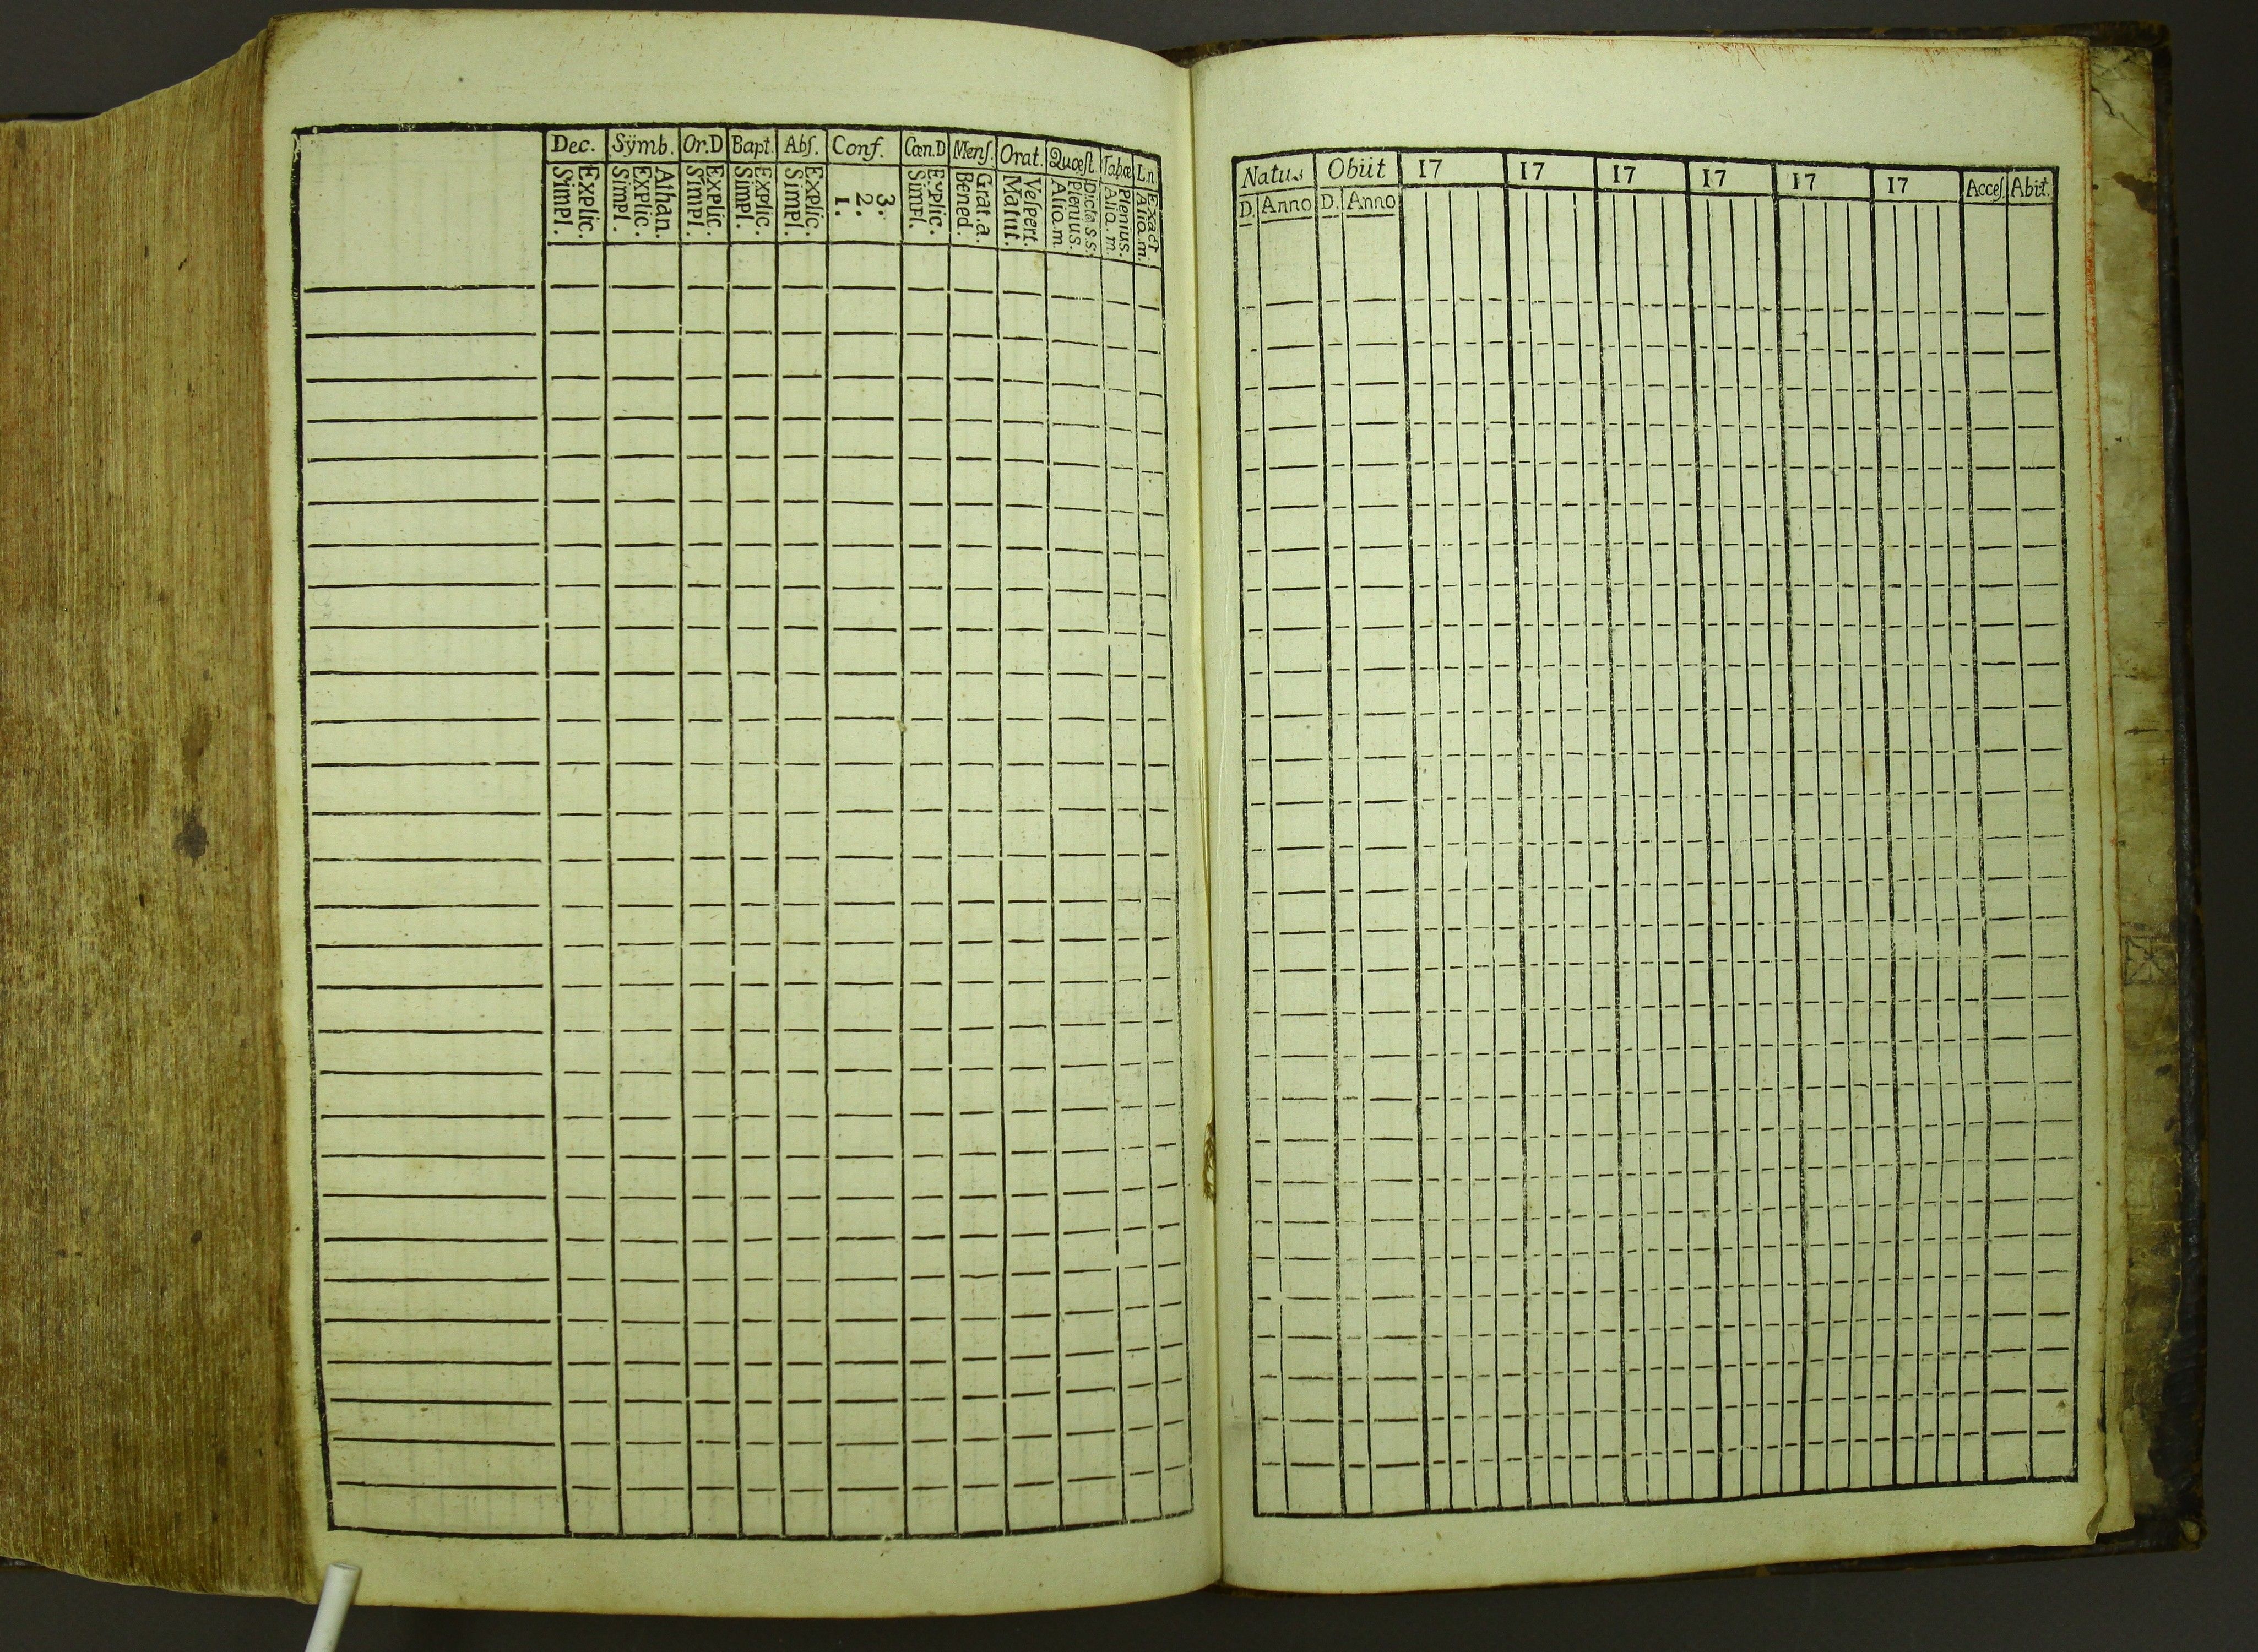 Dec. Sÿmb. Or.D Bapt. Abſ. Conf. Cœn.D Menſ. Orat. Quæſt Tabæ L.n
Explic.
Simpl.
Athan.
Explic.
Simpl.
Explic.
Simpl.
Explic.
Simpl.
Explic.
Simpl.
3.
2.
1.
Explic.
Simpl.
Grat. a.
Bened.
Veſpert.
Matut.
Dicta s.s.
Plenius.
Alio. m.
Plenius.
Alio. m.
Exact
Alio. m.
Natus Obiit 17 17 17 17 17 17 Acceſ. Abit.
D. Anno D. Anno